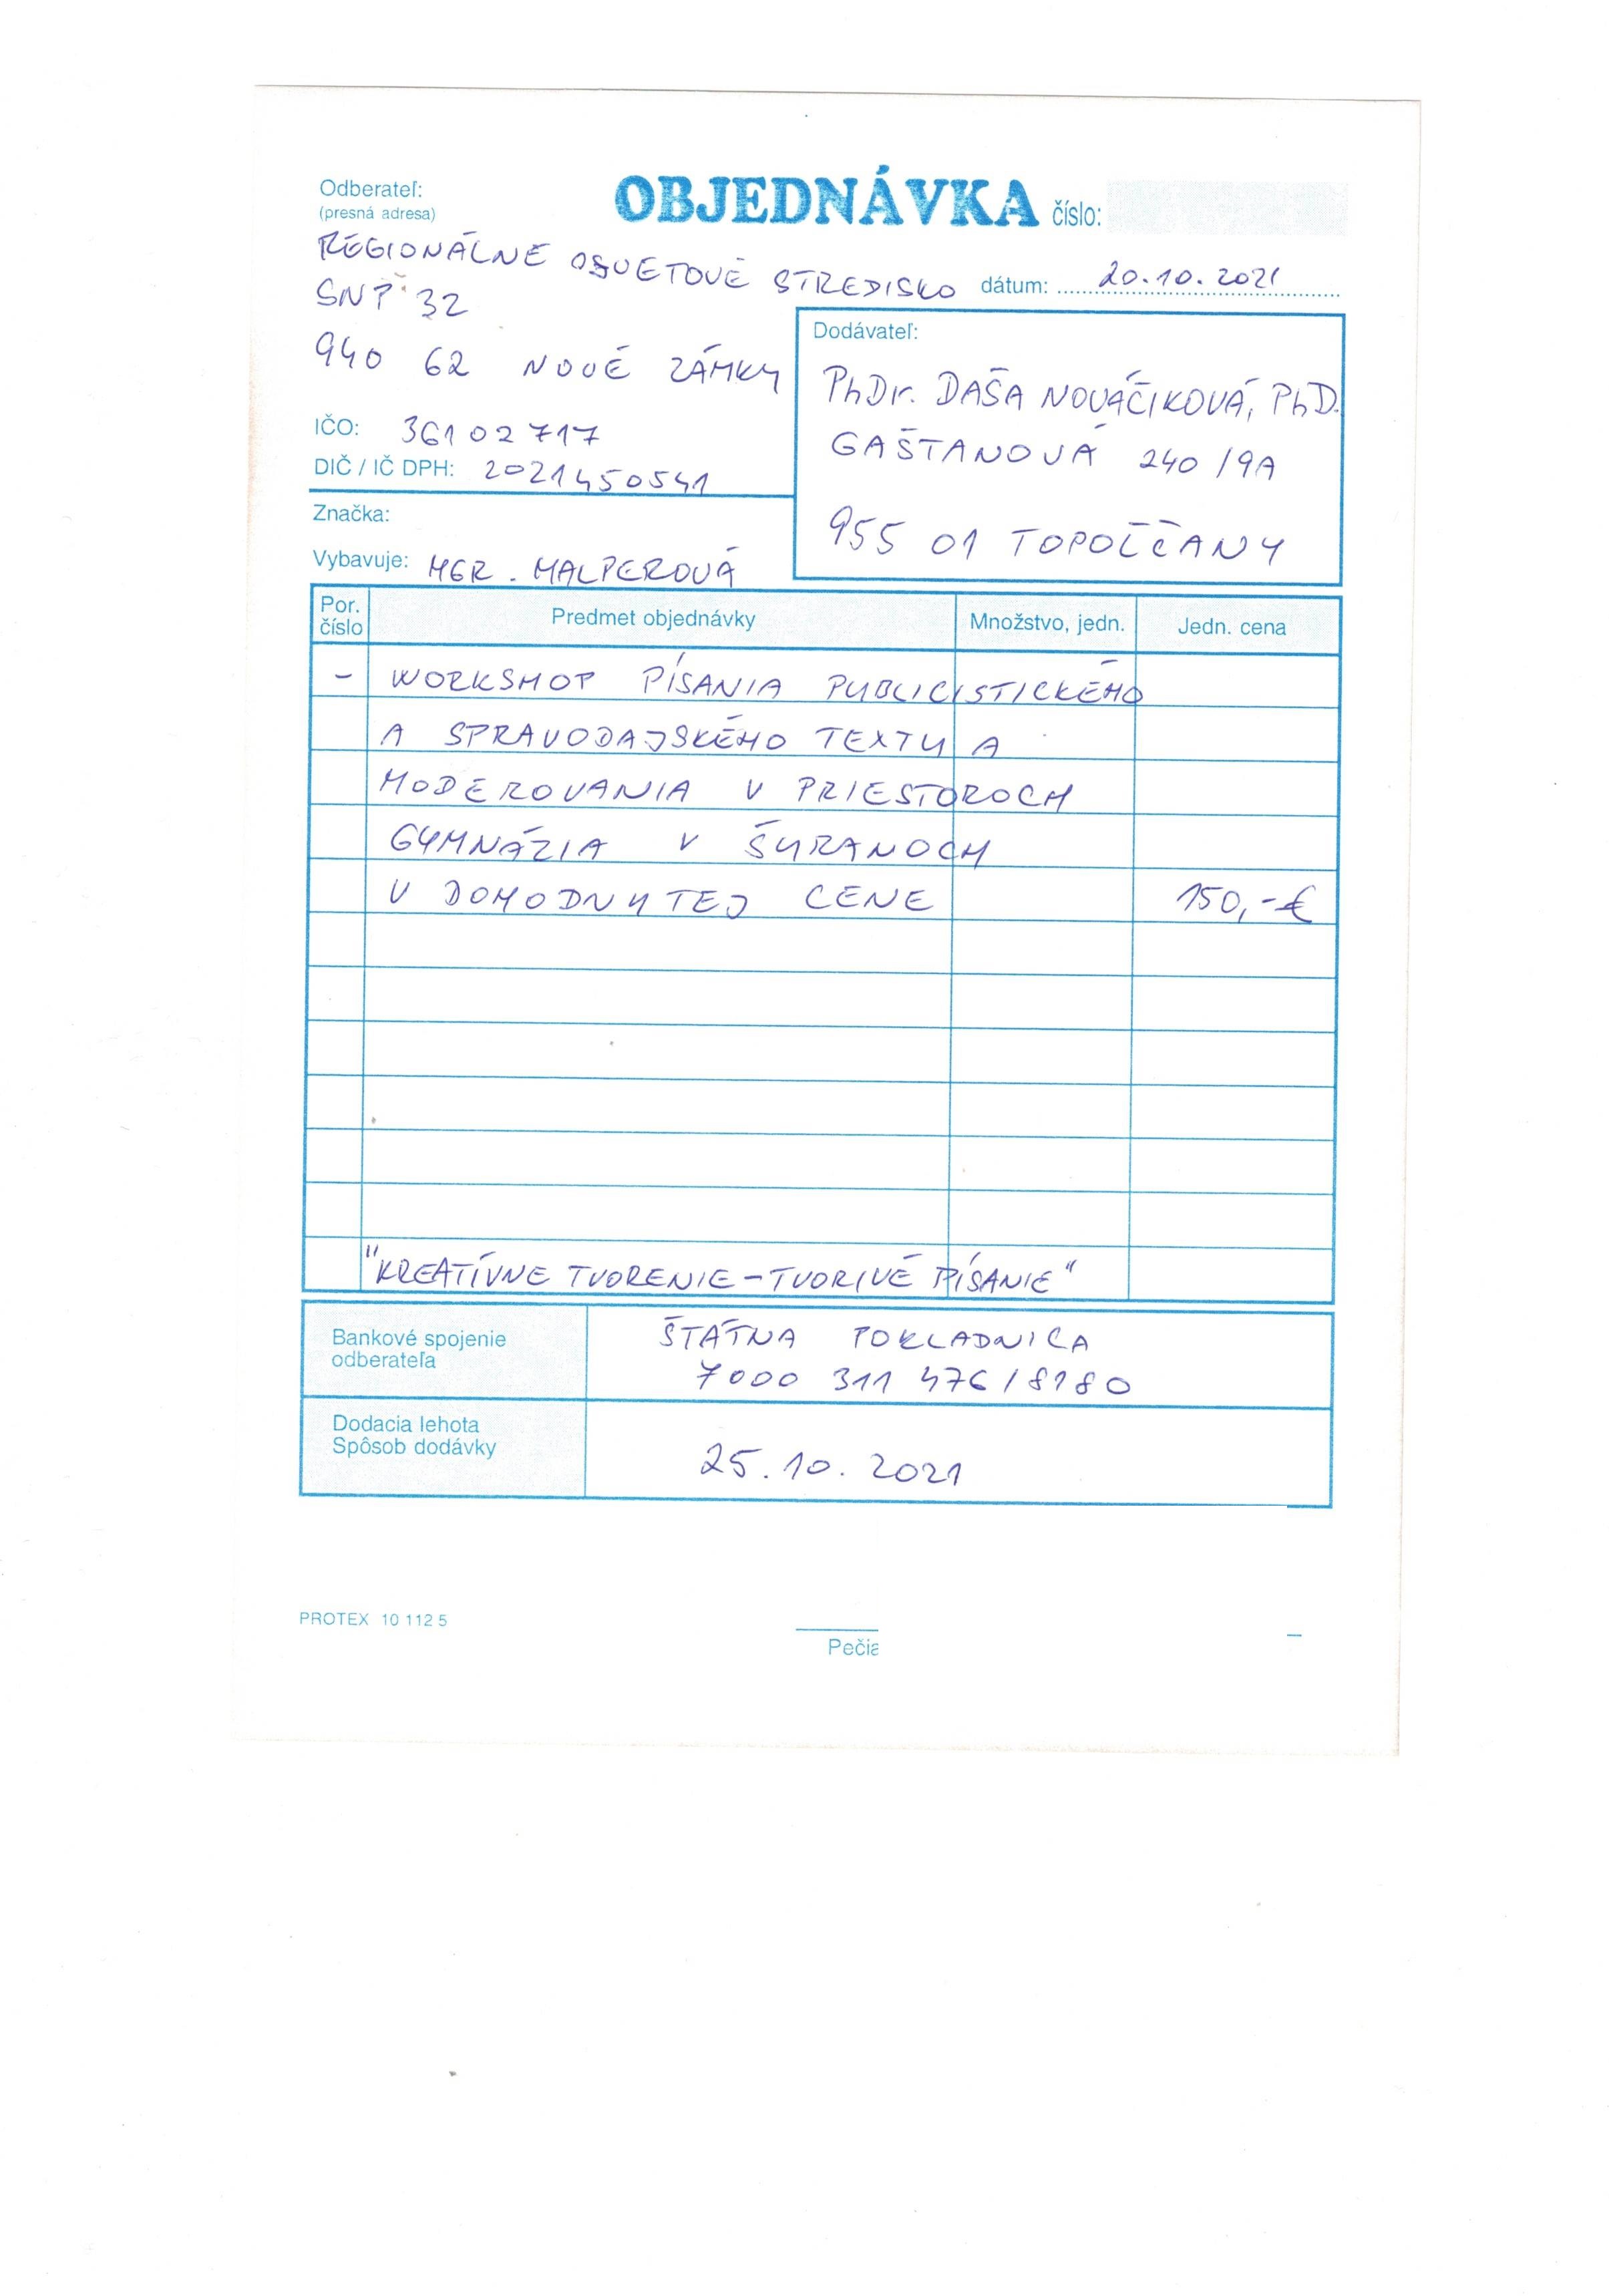 Odberateľ:
(presná adresa)
OBJEDNÁVKA číslo:
REGIONÁLNE OSVETOVÉ STREDISKO
dátum: 20.10.2021
SNP 32
940 62 NOVÉ ZÁMKY
IČO: 36102717
DIČ / IČ DPH: 2021450541
Značka:
Vybavuje: MGR. MALPEROVÁ
Dodávateľ:
PhDr. DAŠA NOVÁČIKOVÁ, PhD.
GAŠTANOVÁ 240/9A
955 01 TOPOĽČANY
Por. číslo Predmet objednávky Množstvo, jedn. Jedn. cena
- WORKSHOP PÍSANIA PUBLICISTICKÉHO
A SPRAVODAJSKÉHO TEXTU A
MODEROVANIA V PRIESTOROCH
GYMNÁZIA V ŠURANOCH
V DOHODNUTEJ CENE 150,-€
"KREATÍVNE TVORENIE - TVORIVÉ PÍSANIE"
Bankové spojenie
odberateľa
ŠTÁTNA POKLADNICA
7000 311 476/8180
Dodacia lehota
Spôsob dodávky
25.10.2021
PROTEX 10 112 5
Pečia